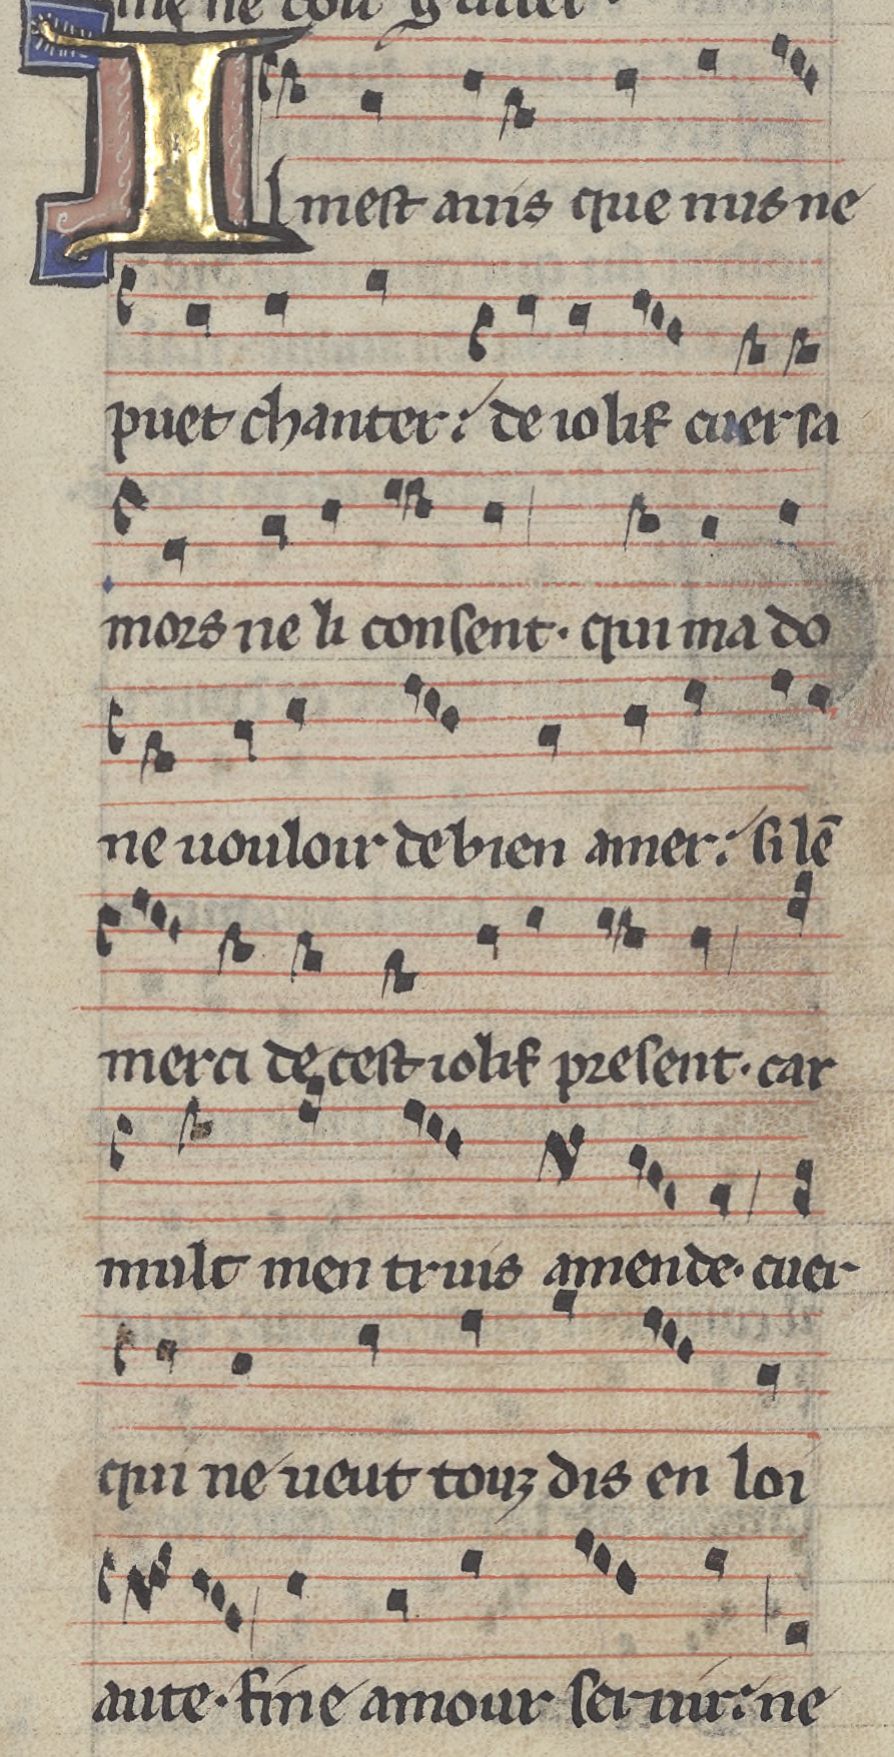 me ne doit
Il mest auis que nus ne
puet chanter: de iolif cuer sa
mors ne li consent. qui ma do
ne uouloir de bien amer: si lē
merci de cest iolif present. car
mult men truis amende. cuer
qui ne ueut touz dis en loi
aute. fine amour seruir: ne